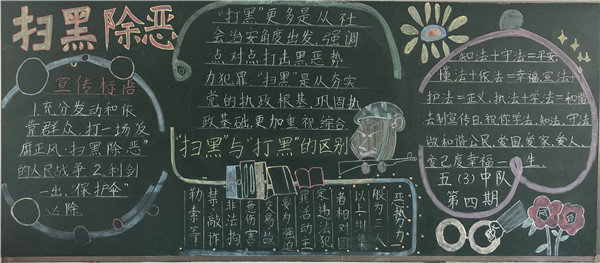 扫黑除恶
宣传标语
1.充分发动和依
靠群众,打一场发
腐正风·扫黑除恶"
的人民战争 2.利剑
一出,"保护伞"
必除
"打黑"更多是从社
会治安角度出发,强调
点对点打击黑恶势
力犯罪."扫黑"是从夯实
党的执政根基,巩固执
政基础,更加重视,综合
"扫黑"与"打黑"的区别
恶势力
般为三人
以上纠集
者相对固
定违法犯
罪活动主
要为强迫
交易、故
意伤害
非法拘
禁、敲诈
勒索等
知法+守法=平安,
懂法+依法=幸福,宣法+
护法=正义,执法+学法=和谐
法制宣传日,祝你学法,知法,守法
做和谐公民,爱国,爱家,爱人,
爱己度幸福一生.
五(3)中队
第四期